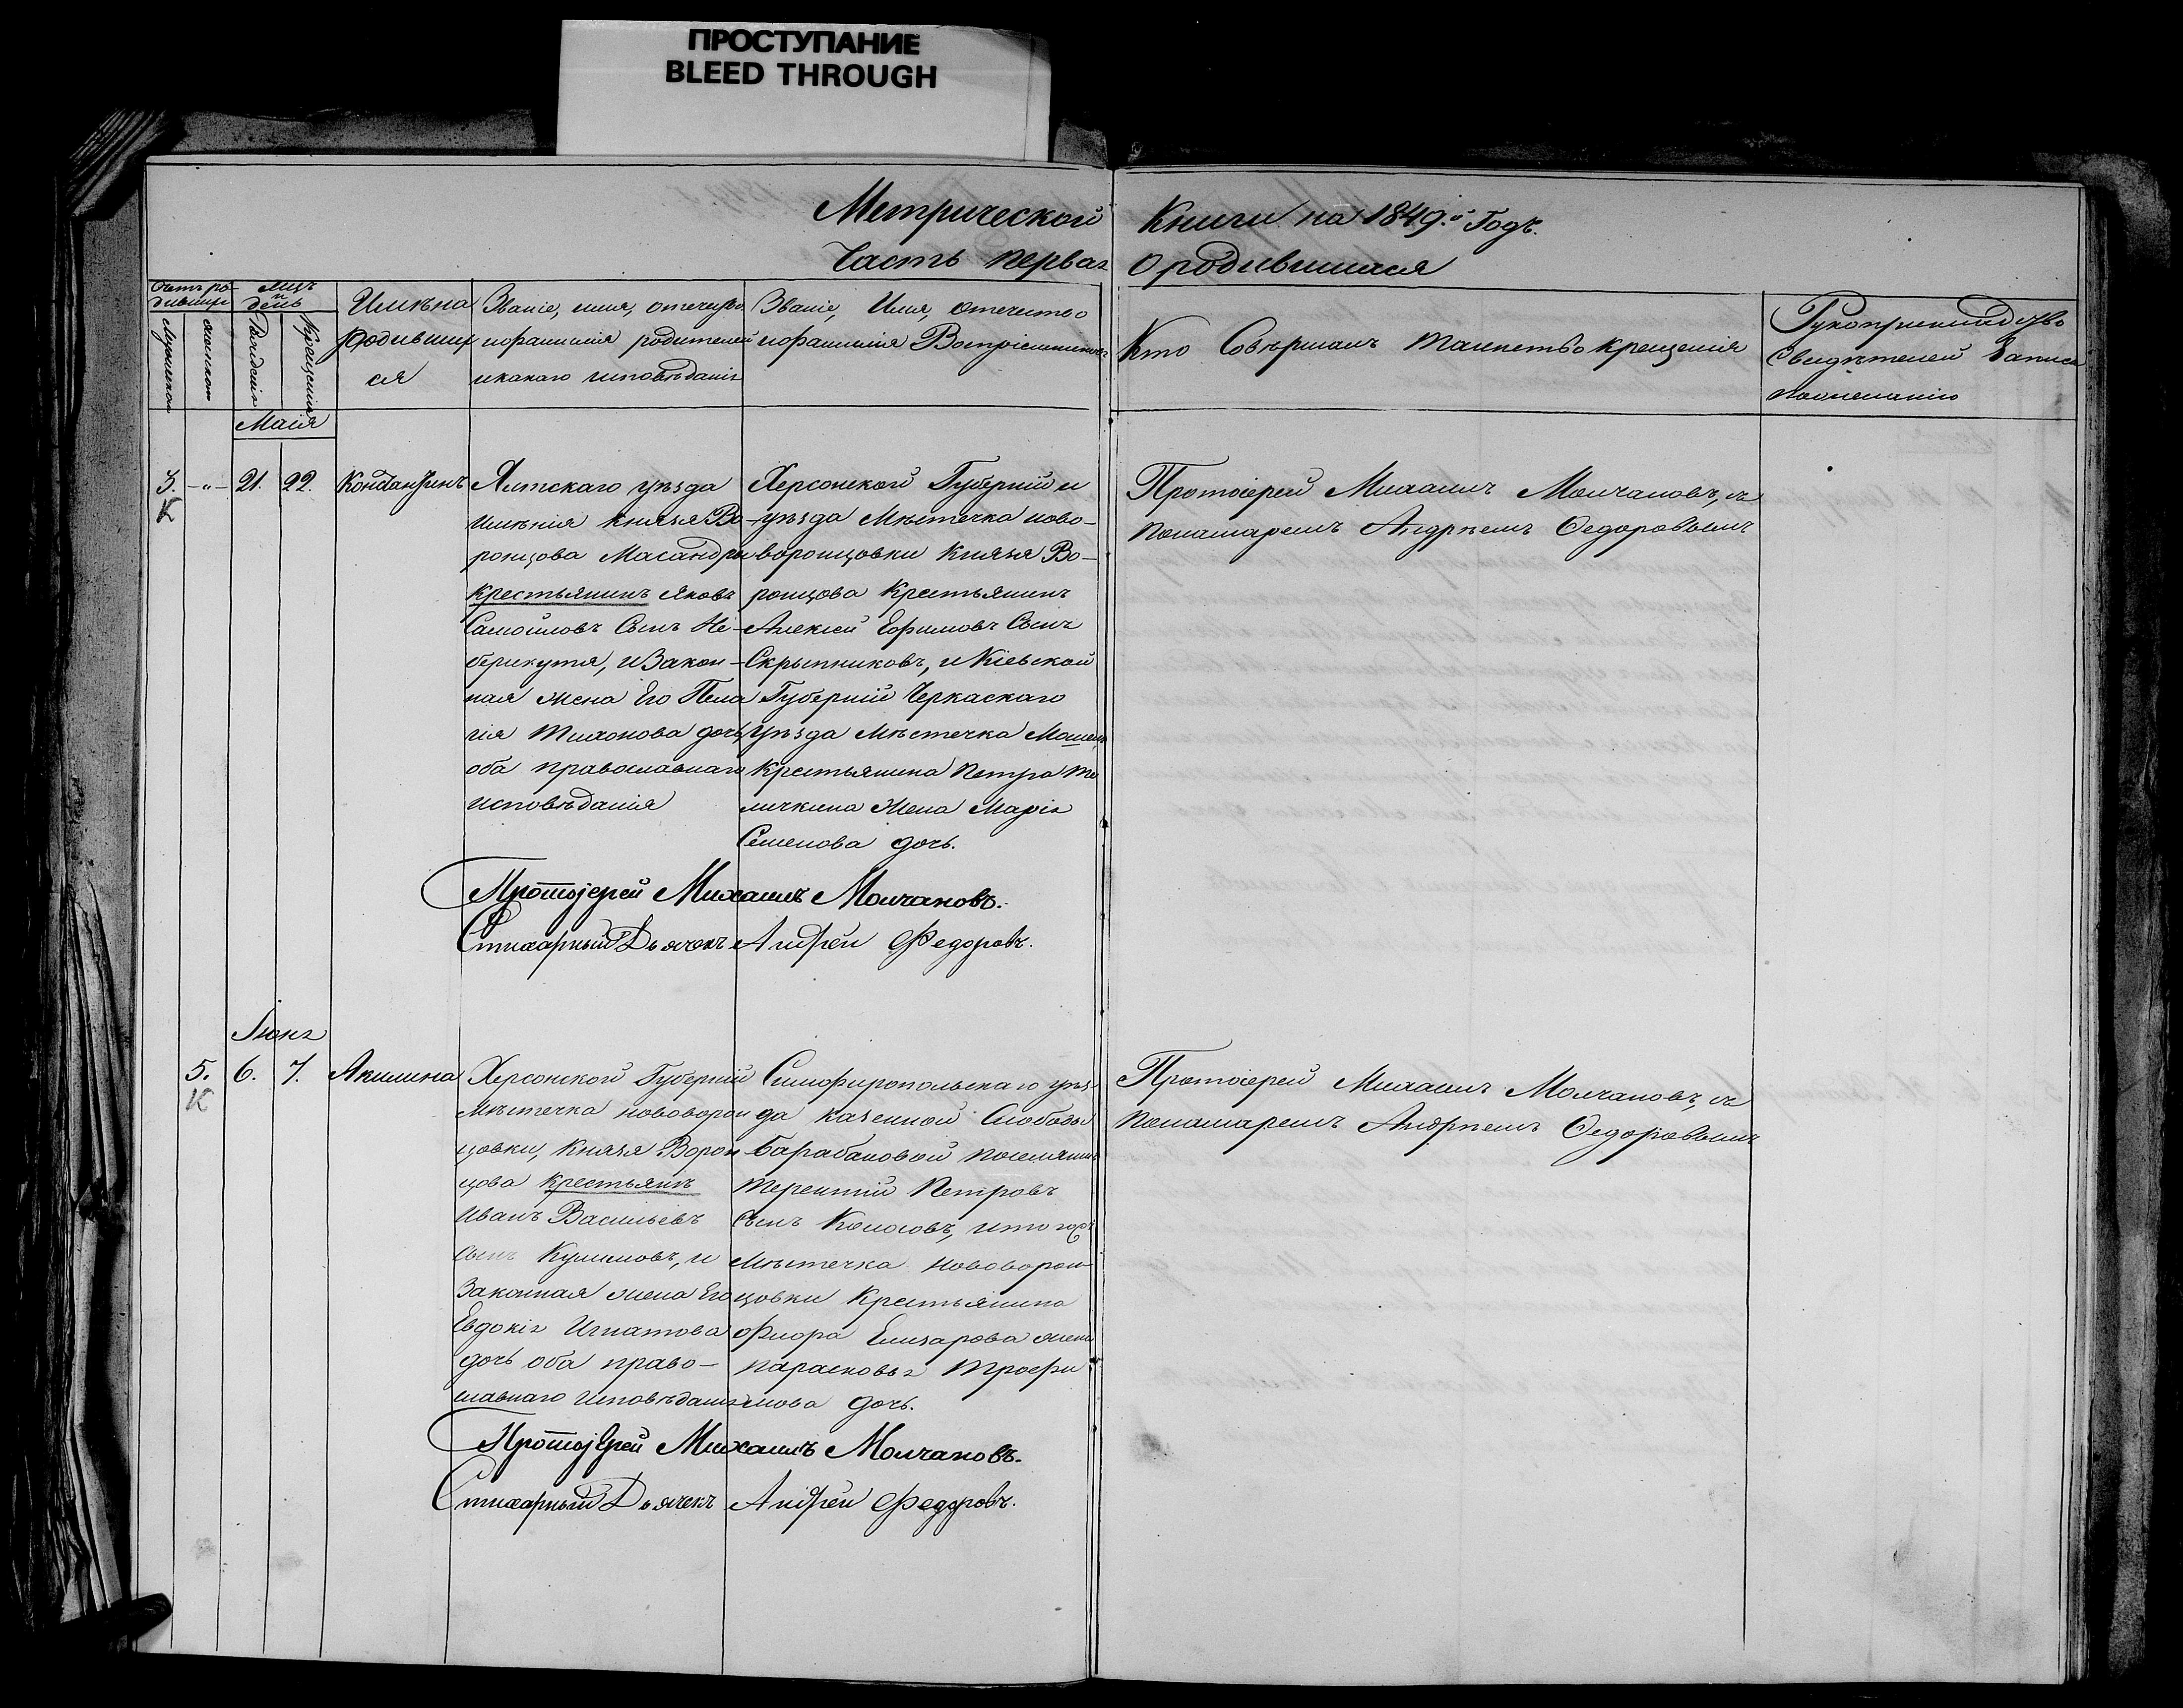 ПРОСТУПАНИЕ
BLEED THROUGH
Метрической Книги на 1849.й Годъ.
Часть первая О родившихся
Счетъ ро-
дившихся
Мужескаго
женскаго
Мцъ
и
день
Рожденія
Крещенія
Имѣна
Родивших
ся
Званіе, имя, отечество
и фамилія родителей
и какаго исповѣданія
Званіе, Имя, отечество
и фамилія Воспріемниковъ
Кто Совѣршалъ таинство крещенія
Рукоприкладство
Свидѣтелей записи
по желанію
Маія
3. -"- 21. 22. Константинъ
К
Ялтскаго уѣзда
имѣнія князя Во-
ронцова Масандры
крестьянинъ Яковъ
Самойловъ Сынъ Не-
берикутя, и Закон-
ная жена Его Пела
гія Тихонова дочь,
оба православнаго
исповѣданія
Херсонской Губерніи и
уѣзда Мѣстечка ново-
воронцовки Князя Во-
ронцова Крестьянинъ
Алексей Ефимовъ Сынъ
Скрыпниковъ, и Кіевской
Губерніи Черкаскаго
Уѣзда Мѣстечка Мошенъ
Крестьянина Петра Те
личкина Жена Марія
Семенова дочь.
Протоіерей Михаилъ Молчановъ, съ
пономаремъ Андрѣемъ Ѳедоровымъ
Протоjерей Михаилъ Молчановъ.
Стихарный Дьячекъ Андрей Федоровъ.
Іюня
5. 6. 7. Акилина
К
Херсонской Губерніи
Мѣстечка нововорон
цовки, Князя Ворон
цова крестьянъ
Иванъ Васильевъ
сынъ Куликовъ, и
Законная жена Его
Евдокія Игнатова
дочь оба право-
славнаго исповѣданія
Симферопольскаго уѣз-
да казенной Слободы
Барабановой поселянинъ
Терентій Петровъ
Сынъ Колосовъ, и того жъ
Мѣстечка Нововорон-
цовки Крестьянина
Флора Елизарова жена
Парасковья Трофи
мова дочь.
Протоіерей Михаилъ Молчановъ, съ
пономаремъ Андрѣемъ Ѳедоровымъ
Протоjерей Михаилъ Молчановъ.
Стихарный Дьячекъ Андрей Федоровъ.